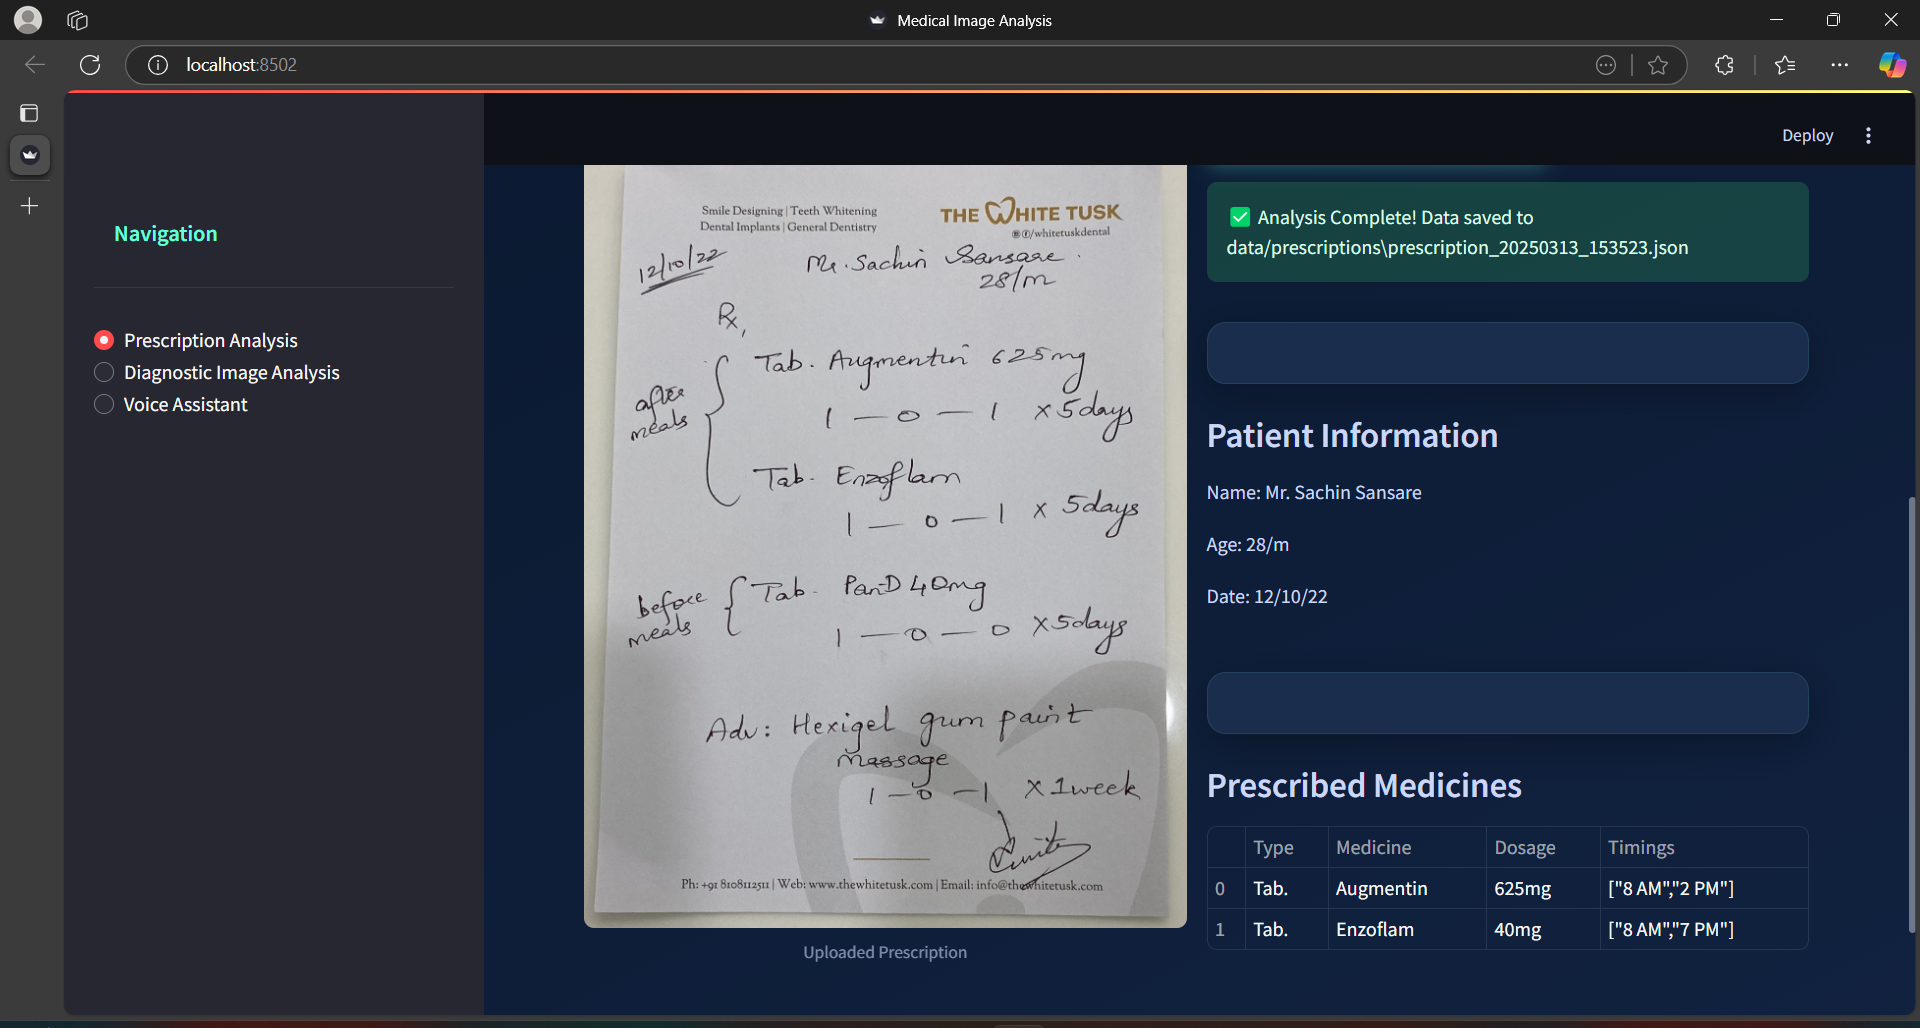 Medical Image Analysis
localhost:8502
Deploy
Navigation
Prescription Analysis
Diagnostic Image Analysis
Voice Assistant
Smile Designing | Teeth Whitening
Dental Implants | General Dentistry
THE WHITE TUSK
/whitetuskdental
12/10/22
Mr. Sachin Sansare
28/m
Rx,
after meals
Tab. Augmentin 625mg
1 — 0 — 1 x 5days
Tab. Enzoflam
1 — 0 — 1 x 5days
before meals
Tab. PanD 40mg
1 — 0 — 0 x 5days
Adv: Hexigel gum paint
massage
1 — 0 — 1 x 1week
Ph: +91 8108112511 | Web: www.thewhitetusk.com | Email: info@thewhitetusk.com
Uploaded Prescription
Analysis Complete! Data saved to
data/prescriptions\prescription_20250313_153523.json
Patient Information
Name: Mr. Sachin Sansare
Age: 28/m
Date: 12/10/22
Prescribed Medicines
Type Medicine Dosage Timings
0 Tab. Augmentin 625mg ["8 AM","2 PM"]
1 Tab. Enzoflam 40mg ["8 AM","7 PM"]